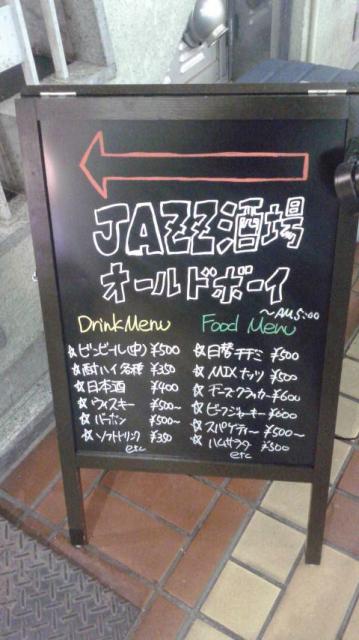 JAZZ酒場
オールドボーイ
～AM5:00
Drink Menu
☆ビンビール(中) ¥500
☆酎ハイ各種 ¥350
☆日本酒 ¥400
☆ウィスキー ¥500～
☆バーボン ¥500～
☆ソフトドリンク ¥350
etc
Food Menu
☆日替チヂミ ¥500
☆MIXナッツ ¥500
☆チーズクラッカー ¥600
☆ビーフジャーキー ¥600
☆スパゲティー ¥500～
☆ハムサラダ ¥500
etc